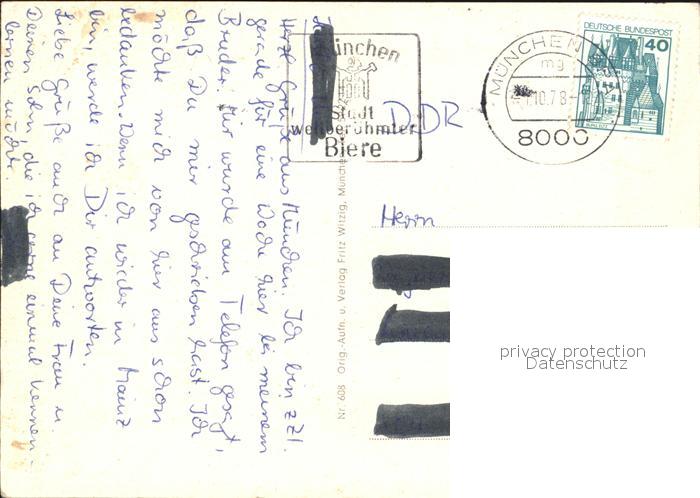 Herzl. Grüße aus München. Ich bin zZt.
gerade für eine Woche hier bei meinem
Bruder. Mir wurde am Telefon gesagt,
daß Du mir geschrieben hast. Ich
möchte mich von hier aus schon
bedanken. Wenn ich wieder in Mainz
bin, werde ich Dir antworten.
Liebe Grüße auch an Deine Frau u.
Deinen Sohn, die ich gerne einmal kennen-
lernen möchte.
München
Stadt
weltberühmter
Biere
DDR
MÜNCHEN
mg
.10.78
8000
DEUTSCHE BUNDESPOST
40
Herrn
Nr. 608 Orig.-Aufn. u. Verlag Fritz Witzig, München
privacy protection
Datenschutz